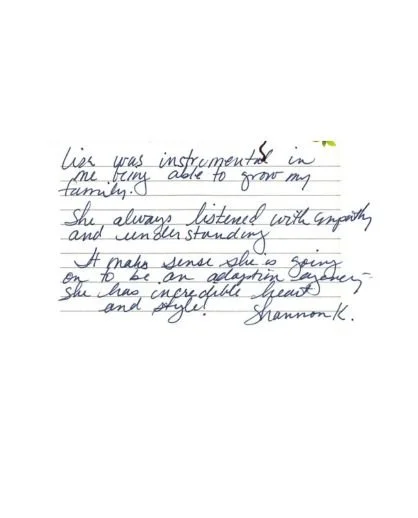 Lisa was instrumental in
me being able to grow my
family.
She always listened with empathy
and understanding
It makes sense she is going
on to be an adoption agency -
she has incredible heart
and style!
Shannon K.